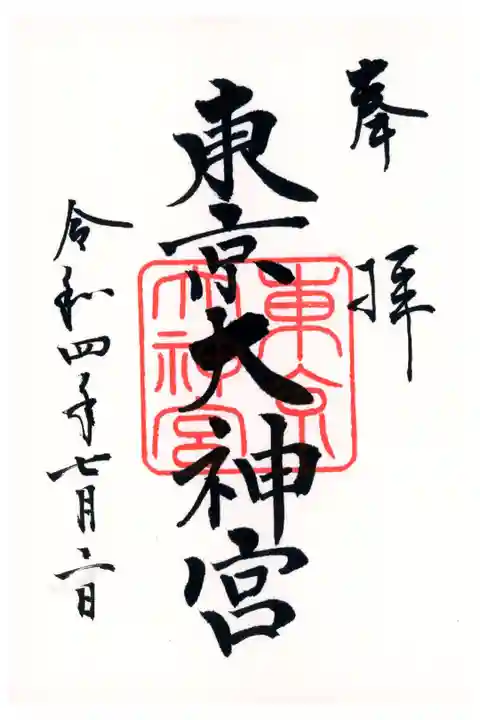 奉拝
東京大神宮
東京
大神宮
令和四年七月二日